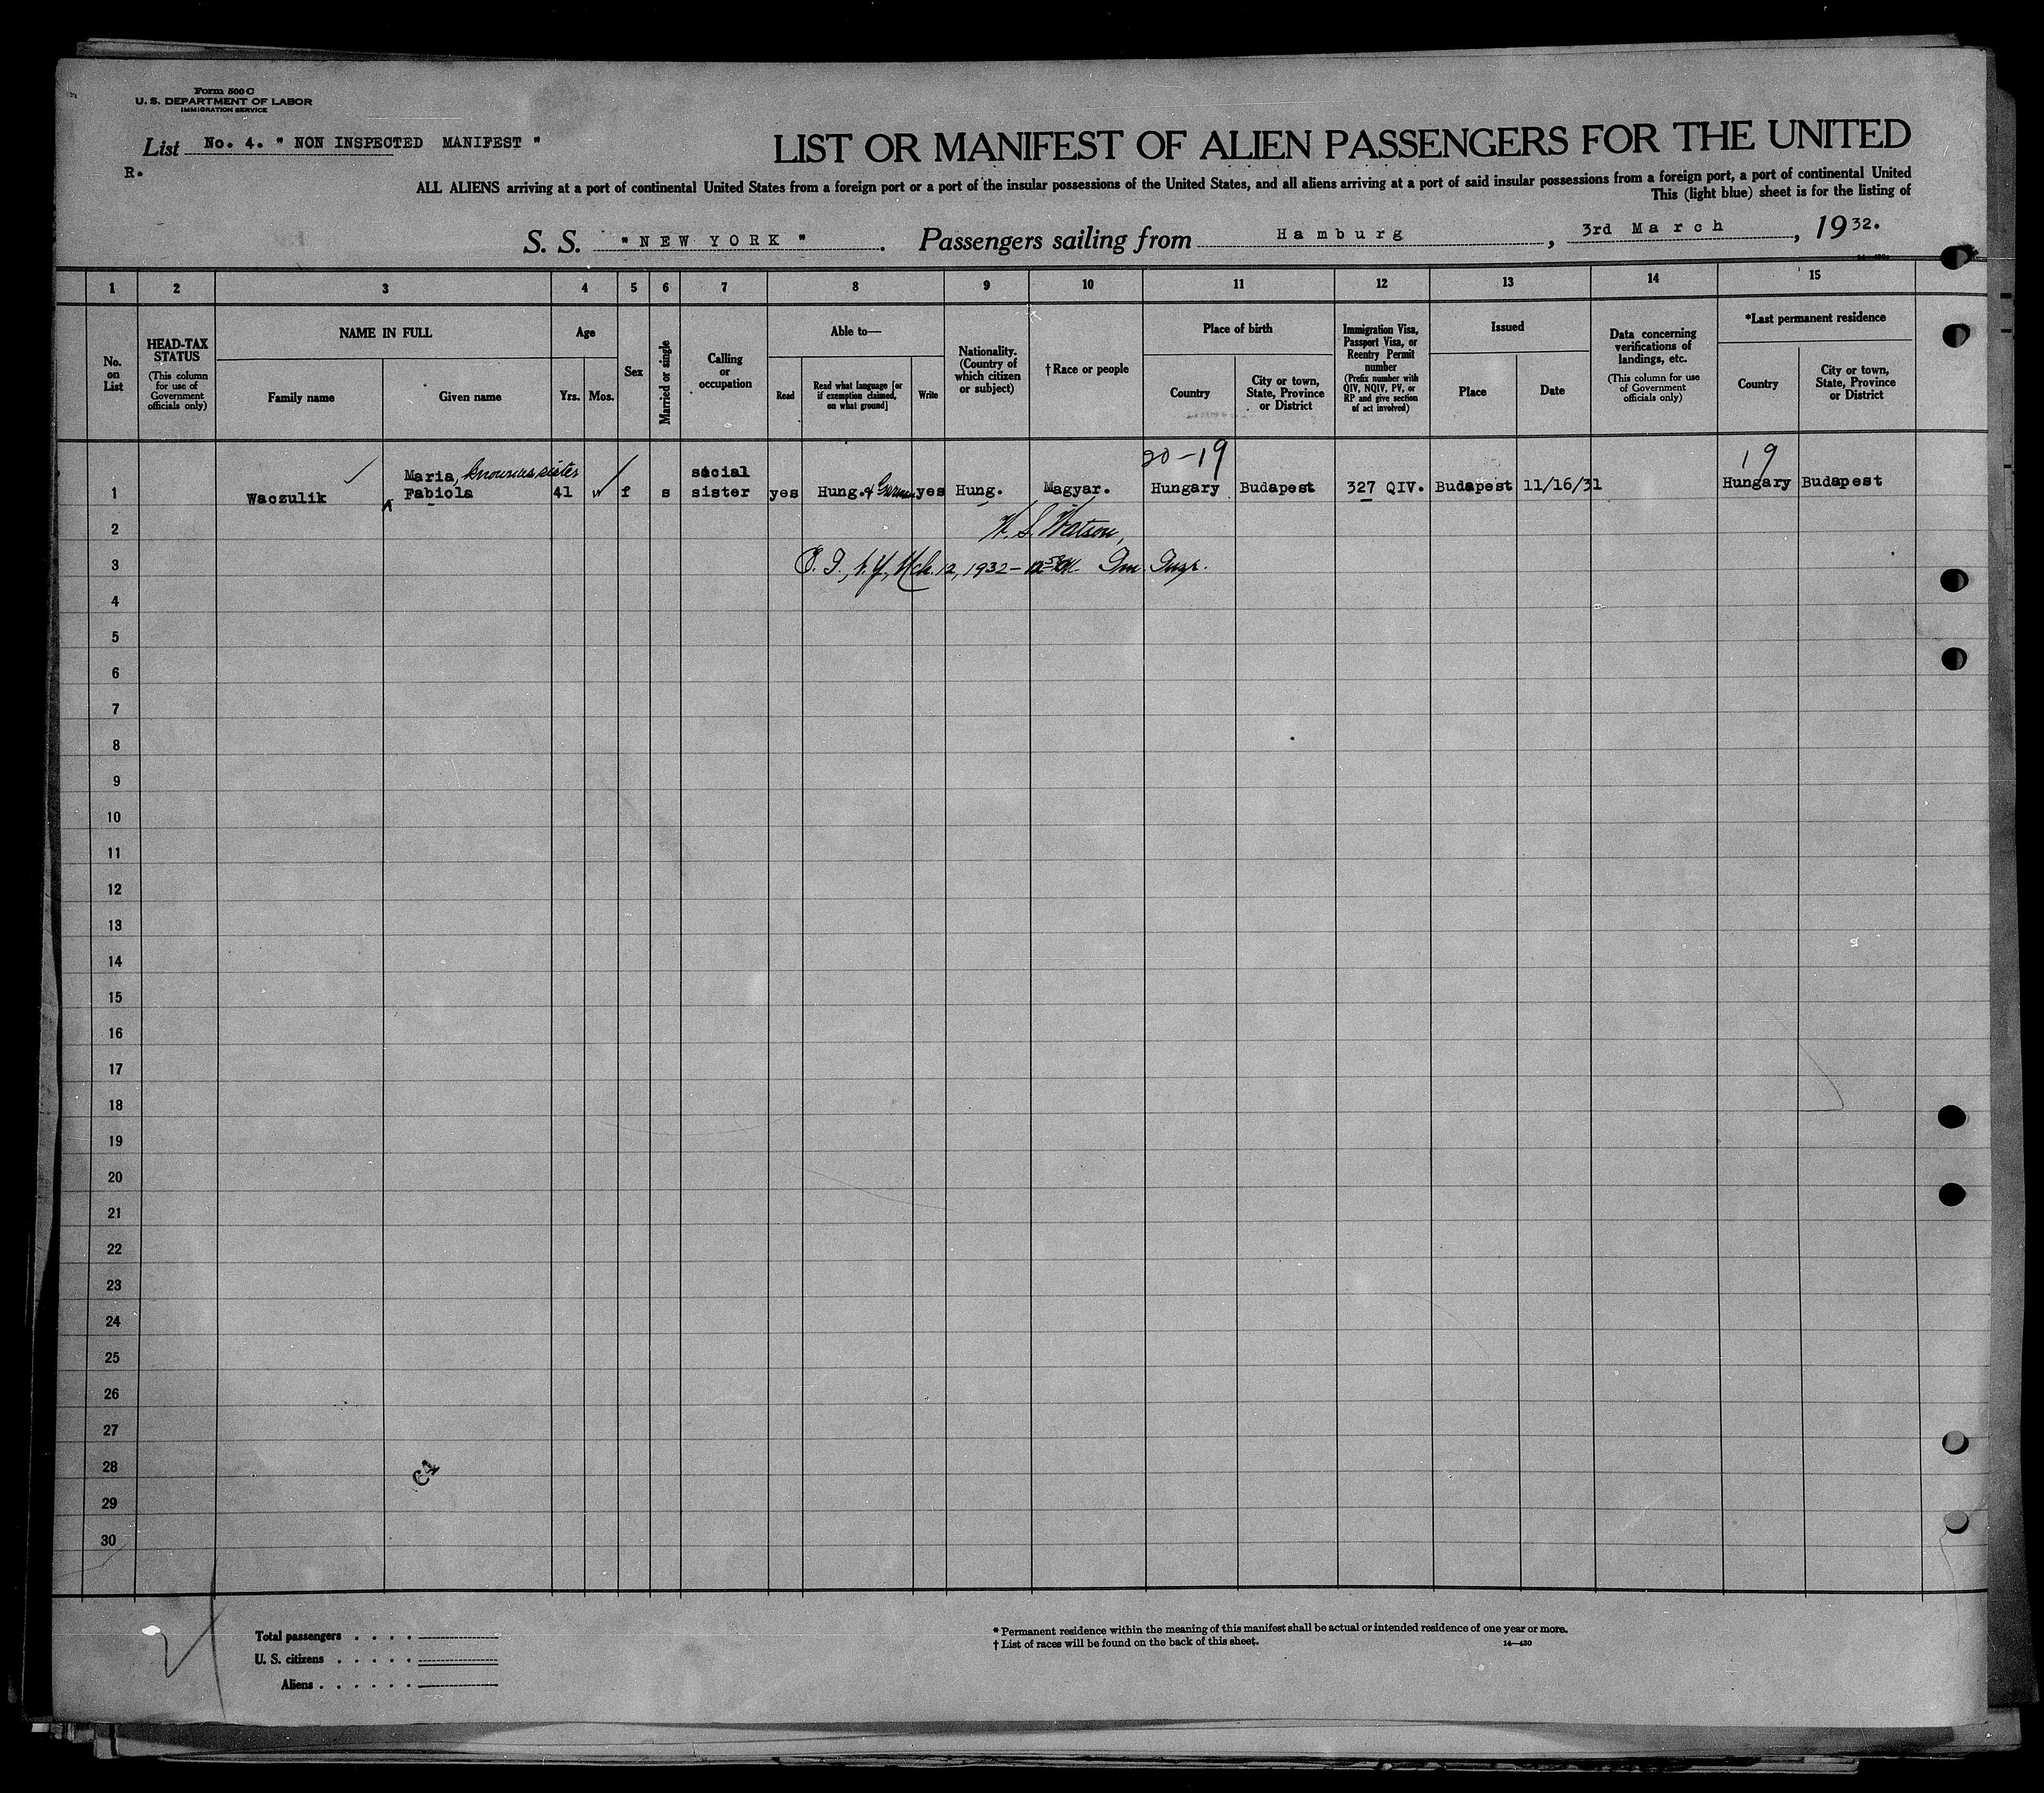 Form 500 C
U. S. DEPARTMENT OF LABOR
IMMIGRATION SERVICE
List No. 4. " NON INSPECTED MANIFEST "
R.
LIST OR MANIFEST OF ALIEN PASSENGERS FOR THE UNITED
ALL ALIENS arriving at a port of continental United States from a foreign port or a port of the insular possessions of the United States, and all aliens arriving at a port of said insular possessions from a foreign port, a port of continental United
This (light blue) sheet is for the listing of
S. S. " NEW YORK " . Passengers sailing from Hamburg , 3rd March , 1932.
1 2 3 4 5 6 7 8 9 10 11 12 13 14 15
No. on List
HEAD-TAX STATUS
(This column for use of Government officials only)
NAME IN FULL
Family name
Given name
Age
Yrs.
Mos.
Sex
Married or single
Calling or occupation
Able to—
Read
Read what language [or if exemption claimed, on what ground]
Write
Nationality. (Country of which citizen or subject)
† Race or people
Place of birth
Country
City or town, State, Province or District
Immigration Visa, Passport Visa, or Reentry Permit number
(Prefix number with QIV, NQIV, PV, or RP and give section of act involved)
Issued
Place
Date
Data concerning verifications of landings, etc.
(This column for use of Government officials only)
*Last permanent residence
Country
City or town, State, Province or District
20-19 19
Maria, known as sister social
1 Waczulik Fabiola 41 f s sister yes Hung. & German yes Hung. Magyar. Hungary Budapest 327 QIV. Budapest 11/16/31 Hungary Budapest
2 W. S. Watson,
3 N.Y., Mch. 12, 1932 - Im Insp.
4
5
6
7
8
9
10
11
12
13
14
15
16
17
18
19
20
21
22
23
24
25
26
27
28
29
30
Total passengers . . . .
U. S. citizens . . . . .
Aliens . . . . . .
* Permanent residence within the meaning of this manifest shall be actual or intended residence of one year or more.
† List of races will be found on the back of this sheet.
14—430